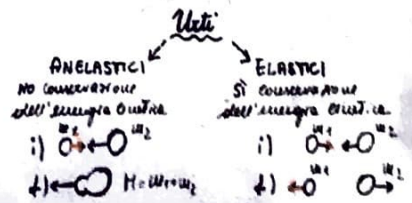 Urti
ANELASTICI
NO conservazione
dell'energia cinetica
i) m1 m2
f) M=m1+m2
ELASTICI
SÌ conservazione
dell'energia cinetica
i) m1 m2
f) m1 m2